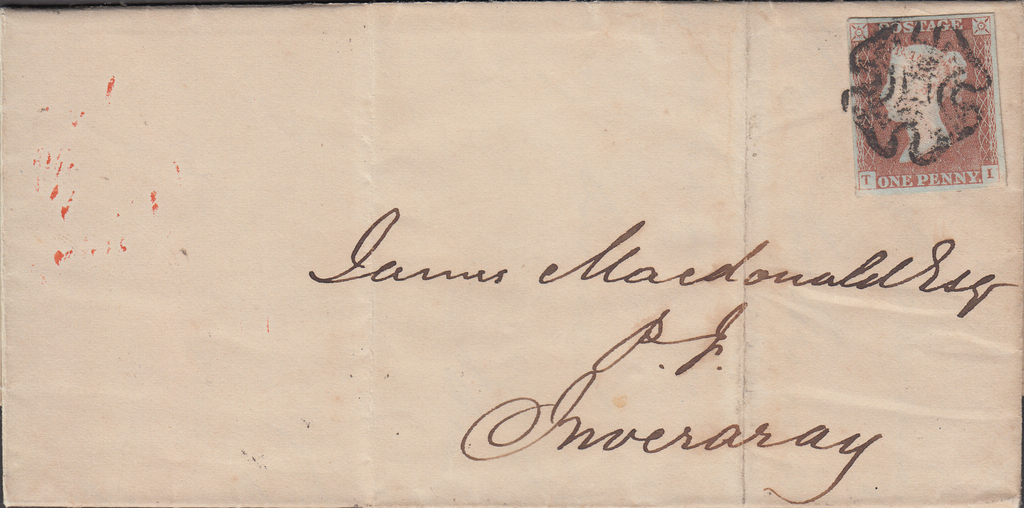 POSTAGE
T ONE PENNY. I
James Macdonald Esqr
P. F.
Inveraray